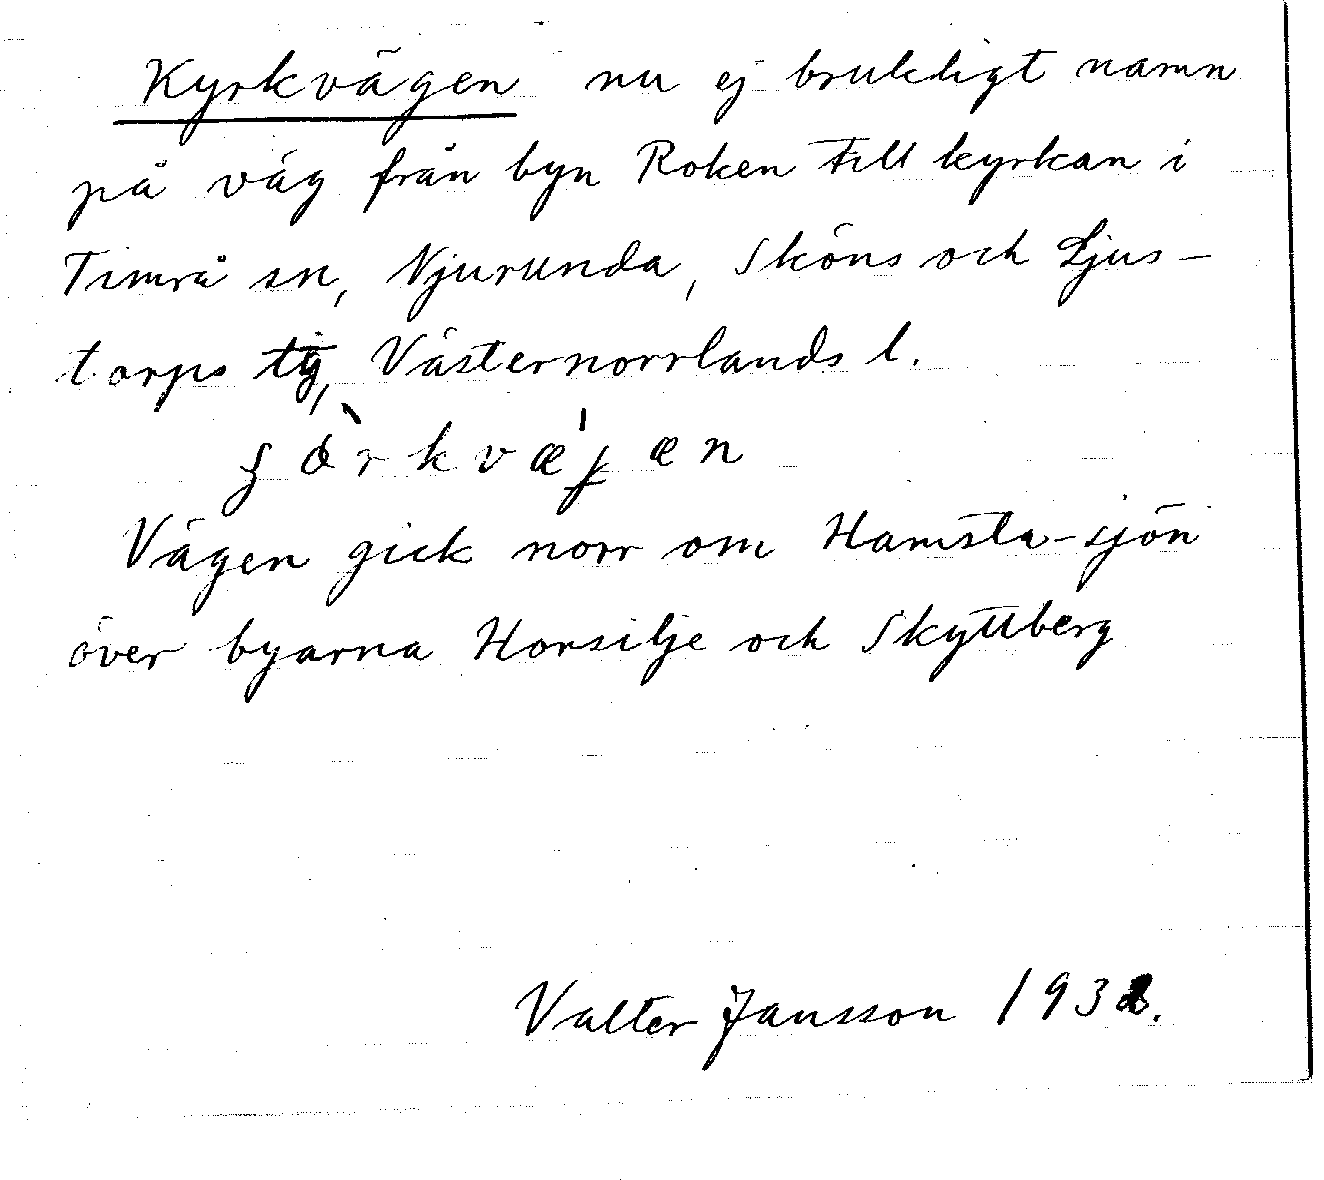 Kyrkvägen nu ej brukligt namn
på väg från byn Roken till kyrkan i
Timrå sn, Njurunda, Sköns och Ljus-
torps tg, Västernorrlands l.
Vägen gick norr om Hamsta-sjön
över byarna Horsilje och Skyttberg
Valter Jansson 1932.